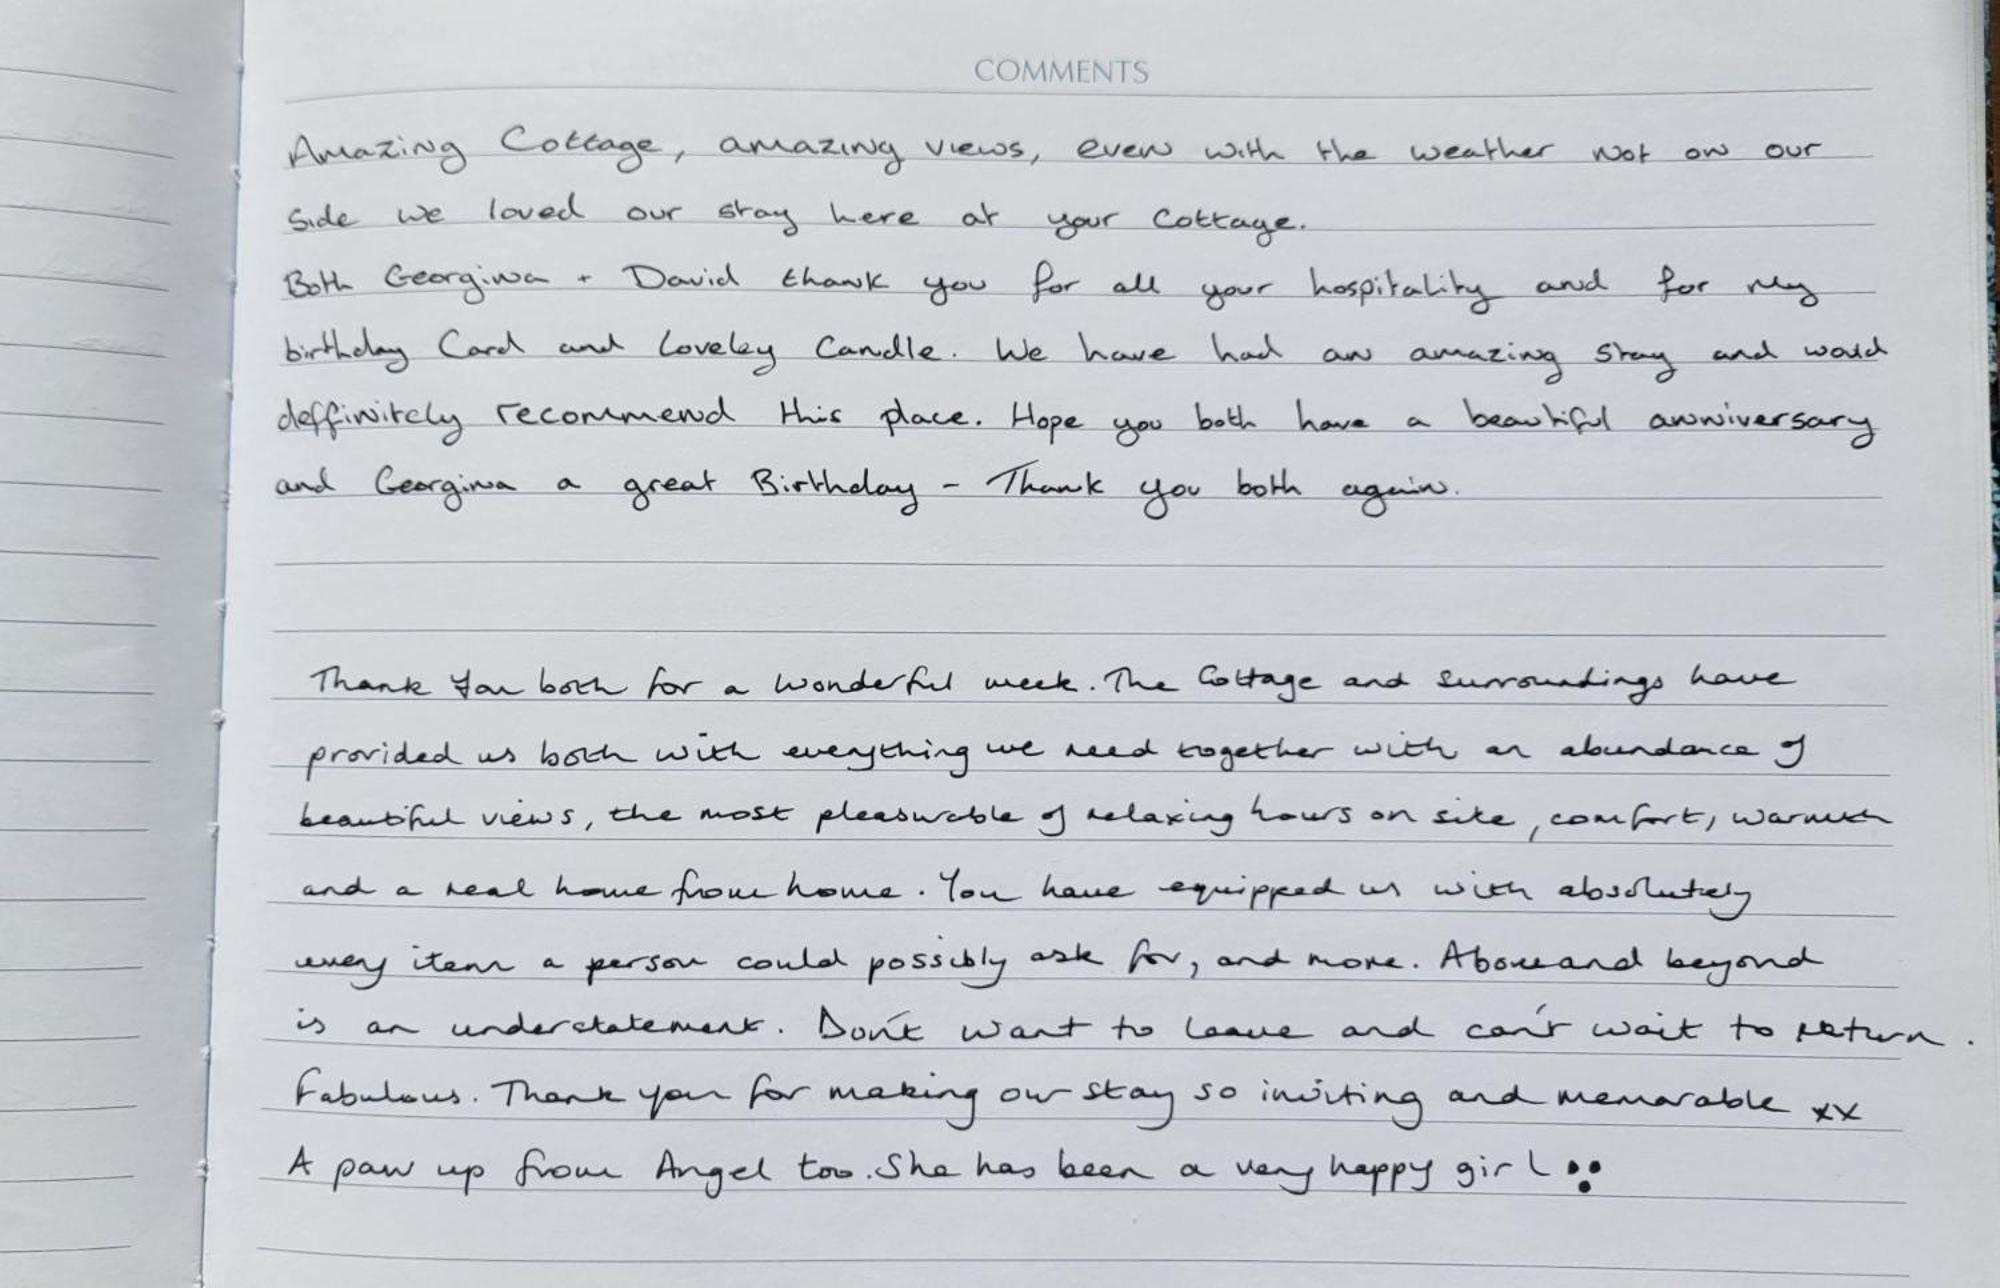 COMMENTS
Amazing Cottage, amazing views, even with the weather not on our
side we loved our stay here at your cottage.
Both Georgina + David thank you for all your hospitality and for my
birthday Card and Loveley Candle. We have had an amazing stay and would
deffinitely recommend this place. Hope you both have a beautiful anniversary
and Georgina a great Birthday - Thank you both again.
Thank you both for a wonderful week. The Cottage and surroundings have
provided us both with everything we need together with an abundance of
beautiful views, the most pleasurable of relaxing hours on site, comfort, warmth
and a real home from home. You have equipped us with absolutely
every item a person could possibly ask for, and more. Above and beyond
is an understatement. Don't want to leave and can't wait to return.
Fabulous. Thank you for making our stay so inviting and memorable xx
A paw up from Angel too. She has been a very happy girl